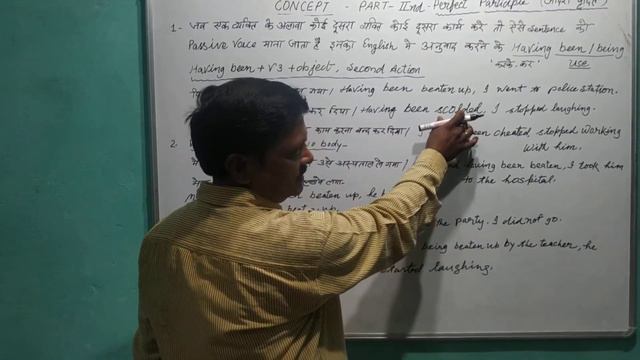 CONCEPT - PART - IInd - Perfect Participle
1- जब एक व्यक्ति के अलावा कोई दूसरा व्यक्ति कोई दूसरा काम करे तो ऐसे Sentence को
Passive Voice माना जाता है इनका English में अनुवाद करने के Having been / being
Having been + V3 + object, Second Action 'करके, कर' use
गया / Having been beaten up, I went to police station.
कर दिया / Having been scolded, I stopped laughing.
काम करना बन्द कर दिया / been cheated stopped working
with him.
2. body -
उसे अस्पताल ले गया / having been beaten, I took him
to the hospital.
beaten up, he
the party. I did not go.
being beaten up by the teacher, he
started laughing.